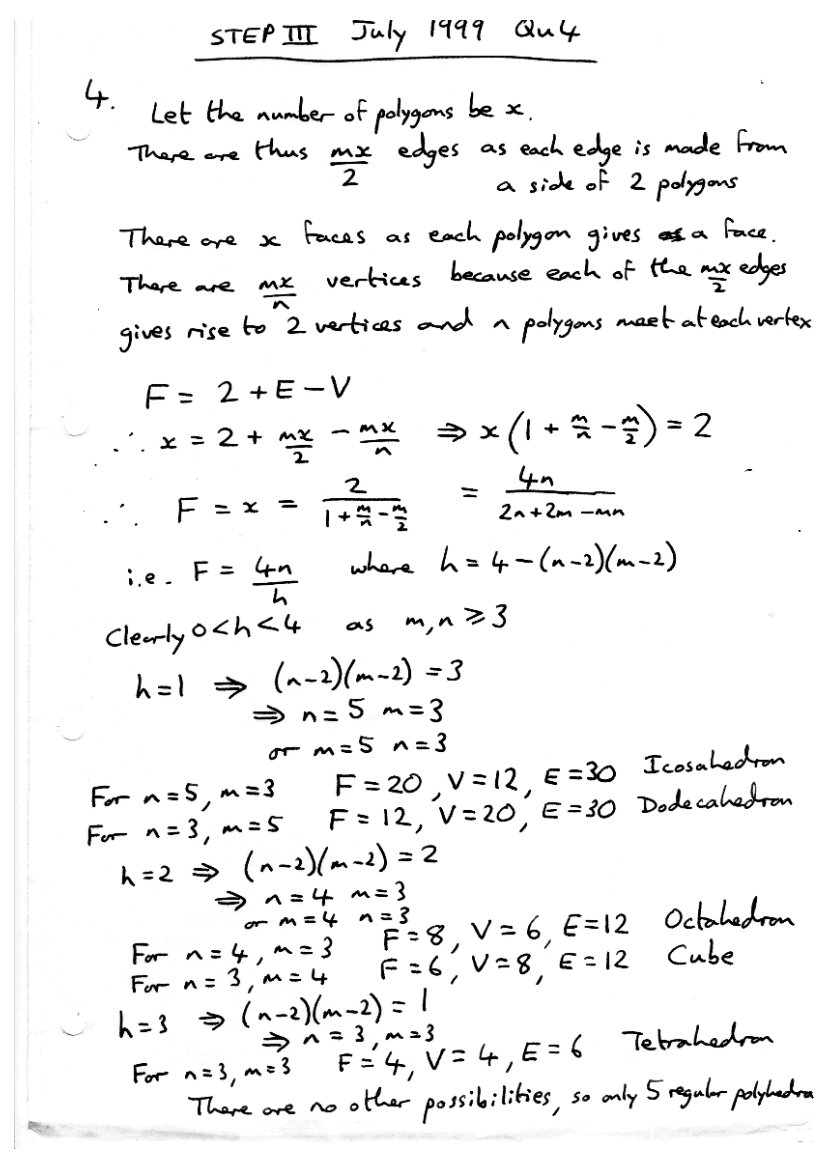 STEP III July 1999 Qu4
4. Let the number of polygons be x.
There are thus mx/2 edges as each edge is made from
a side of 2 polygons
There are x faces as each polygon gives a face.
There are mx/n vertices because each of the mx/2 edges
gives rise to 2 vertices and n polygons meet at each vertex
F = 2 + E − V
∴ x = 2 + mx/2 − mx/n ⇒ x(1 + m/n − m/2) = 2
∴ F = x = 2/(1 + m/n − m/2) = 4n/(2n + 2m − mn)
i.e. F = 4n/h where h = 4 − (n−2)(m−2)
Clearly 0 < h < 4 as m, n ⩾ 3
h = 1 ⇒ (n−2)(m−2) = 3
⇒ n = 5 m = 3
or m = 5 n = 3
For n = 5, m = 3 F = 20, V = 12, E = 30 Icosahedron
For n = 3, m = 5 F = 12, V = 20, E = 30 Dodecahedron
h = 2 ⇒ (n−2)(m−2) = 2
⇒ n = 4 m = 3
or m = 4 n = 3
For n = 4, m = 3 F = 8, V = 6, E = 12 Octahedron
For n = 3, m = 4 F = 6, V = 8, E = 12 Cube
h = 3 ⇒ (n−2)(m−2) = 1
⇒ n = 3, m = 3
For n = 3, m = 3 F = 4, V = 4, E = 6 Tetrahedron
There are no other possibilities, so only 5 regular polyhedra